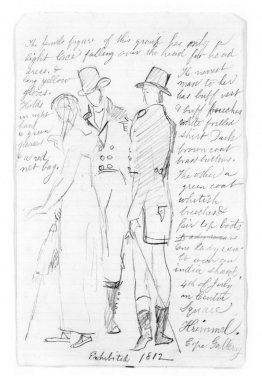 The female figure of this group has only a
light lace falling over the head for head
dress &
long yellow
gloves.
Holds
in right
hand
a green
& red
net bag.
The nearest
man to her
has buff vest
& buff breeches
white frilled
shirt Dark
brown coat
brass buttons.
The other a
green coat
whitish
breeches &
fair top boots
one lady seen
to wear an
india shawl,
4th of July
in Centre
Square
Krimmel.
Expo Gallery
Exhibited 1812